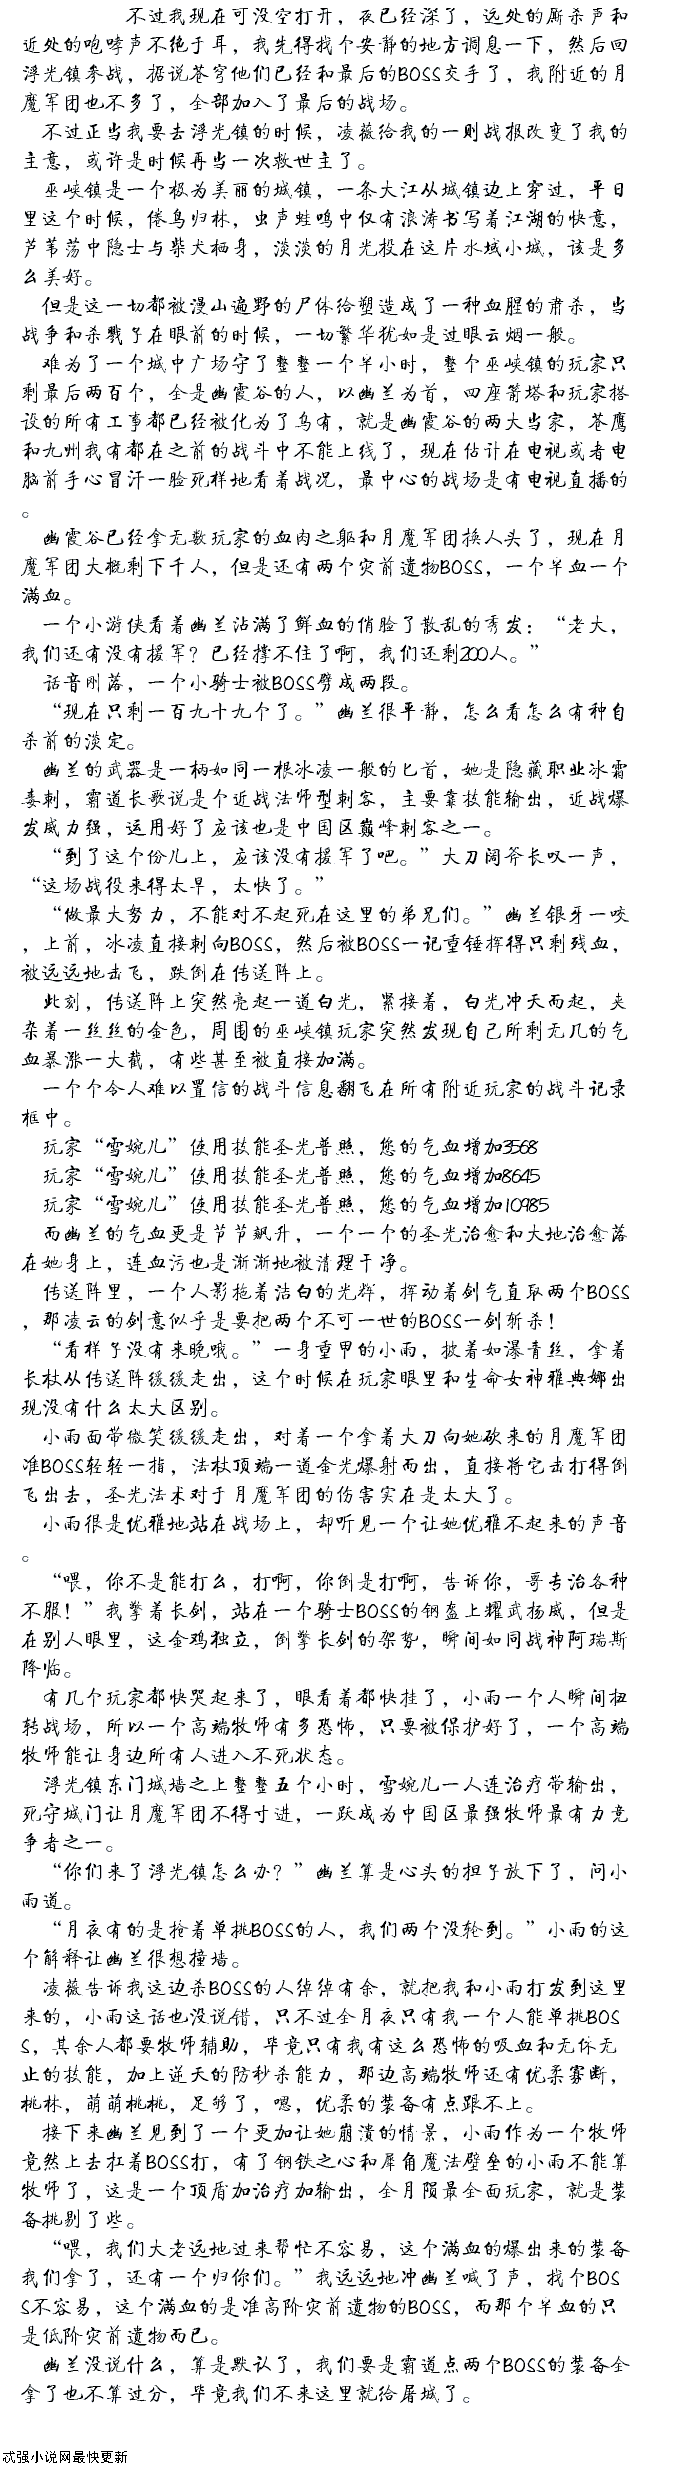 不过我现在可没空打开，夜已经深了，远处的厮杀声和
近处的咆哮声不绝于耳，我先得找个安静的地方调息一下，然后回
浮光镇参战，据说苍穹他们已经和最后的BOSS交手了，我附近的月
魔军团也不多了，全部加入了最后的战场。
不过正当我要去浮光镇的时候，凌薇给我的一则战报改变了我的
主意，或许是时候再当一次救世主了。
巫峡镇是一个极为美丽的城镇，一条大江从城镇边上穿过，平日
里这个时候，倦鸟归林，虫声蛙鸣中仅有浪涛书写着江湖的快意，
芦苇荡中隐士与柴犬栖身，淡淡的月光投在这片水域小城，该是多
么美好。
但是这一切都被漫山遍野的尸体给塑造成了一种血腥的肃杀，当
战争和杀戮子在眼前的时候，一切繁华犹如是过眼云烟一般。
难为了一个城中广场守了整整一个半小时，整个巫峡镇的玩家只
剩最后两百个，全是幽霞谷的人，以幽兰为首，四座箭塔和玩家搭
设的所有工事都已经被化为了乌有，就是幽霞谷的两大当家，苍鹰
和九州我有都在之前的战斗中不能上线了，现在估计在电视或者电
脑前手心冒汗一脸死样地看着战况，最中心的战场是有电视直播的
。
幽霞谷已经拿无数玩家的血肉之躯和月魔军团换人头了，现在月
魔军团大概剩下千人，但是还有两个灾前遗物BOSS，一个半血一个
满血。
一个小游侠看着幽兰沾满了鲜血的俏脸了散乱的秀发：“老大，
我们还有没有援军？已经撑不住了啊，我们还剩200人。”
话音刚落，一个小骑士被BOSS劈成两段。
“现在只剩一百九十九个了。”幽兰很平静，怎么看怎么有种自
杀前的淡定。
幽兰的武器是一柄如同一根冰凌一般的匕首，她是隐藏职业冰霜
毒刺，霸道长歌说是个近战法师型刺客，主要靠技能输出，近战爆
发威力强，运用好了应该也是中国区巅峰刺客之一。
“到了这个份儿上，应该没有援军了吧。”大刀阔斧长叹一声，
“这场战役来得太早，太快了。”
“做最大努力，不能对不起死在这里的弟兄们。”幽兰银牙一咬
，上前，冰凌直接刺向BOSS，然后被BOSS一记重锤挥得只剩残血，
被远远地击飞，跌倒在传送阵上。
此刻，传送阵上突然亮起一道白光，紧接着，白光冲天而起，夹
杂着一丝丝的金色，周围的巫峡镇玩家突然发现自己所剩无几的气
血暴涨一大截，有些甚至被直接加满。
一个个令人难以置信的战斗信息翻飞在所有附近玩家的战斗记录
框中。
玩家“雪婉儿”使用技能圣光普照，您的气血增加3568
玩家“雪婉儿”使用技能圣光普照，您的气血增加8645
玩家“雪婉儿”使用技能圣光普照，您的气血增加10985
而幽兰的气血更是节节飙升，一个一个的圣光治愈和大地治愈落
在她身上，连血污也是渐渐地被清理干净。
传送阵里，一个人影拖着洁白的光辉，挥动着剑气直取两个BOSS
，那凌云的剑意似乎是要把两个不可一世的BOSS一剑斩杀！
“看样子没有来晚哦。”一身重甲的小雨，披着如瀑青丝，拿着
长杖从传送阵缓缓走出，这个时候在玩家眼里和生命女神雅典娜出
现没有什么太大区别。
小雨面带微笑缓缓走出，对着一个拿着大刀向她砍来的月魔军团
准BOSS轻轻一指，法杖顶端一道金光爆射而出，直接将它击打得倒
飞出去，圣光法术对于月魔军团的伤害实在是太大了。
小雨很是优雅地站在战场上，却听见一个让她优雅不起来的声音
。
“喂，你不是能打么，打啊，你倒是打啊，告诉你，哥专治各种
不服！”我擎着长剑，站在一个骑士BOSS的钢盔上耀武扬威，但是
在别人眼里，这金鸡独立，倒擎长剑的架势，瞬间如同战神阿瑞斯
降临。
有几个玩家都快哭起来了，眼看着都快挂了，小雨一个人瞬间扭
转战场，所以一个高端牧师有多恐怖，只要被保护好了，一个高端
牧师能让身边所有人进入不死状态。
浮光镇东门城墙之上整整五个小时，雪婉儿一人连治疗带输出，
死守城门让月魔军团不得寸进，一跃成为中国区最强牧师最有力竞
争者之一。
“你们来了浮光镇怎么办？”幽兰算是心头的担子放下了，问小
雨道。
“月夜有的是抢着单挑BOSS的人，我们两个没轮到。”小雨的这
个解释让幽兰很想撞墙。
凌薇告诉我这边杀BOSS的人绰绰有余，就把我和小雨打发到这里
来的，小雨这话也没说错，只不过全月夜只有我一个人能单挑BOS
S，其余人都要牧师辅助，毕竟只有我有这么恐怖的吸血和无休无
止的技能，加上逆天的防秒杀能力，那边高端牧师还有优柔寡断，
桃林，萌萌桃桃，足够了，嗯，优柔的装备有点跟不上。
接下来幽兰见到了一个更加让她崩溃的情景，小雨作为一个牧师
竟然上去扛着BOSS打，有了钢铁之心和犀角魔法壁垒的小雨不能算
牧师了，这是一个顶盾加治疗加输出，全月陨最全面玩家，就是装
备挑剔了些。
“喂，我们大老远地过来帮忙不容易，这个满血的爆出来的装备
我们拿了，还有一个归你们。”我远远地冲幽兰喊了声，找个BOS
S不容易，这个满血的是准高阶灾前遗物的BOSS，而那个半血的只
是低阶灾前遗物而已。
幽兰没说什么，算是默认了，我们要是霸道点两个BOSS的装备全
拿了也不算过分，毕竟我们不来这里就给屠城了。
忒强小说网最快更新